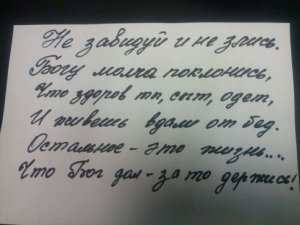 Не завидуй и не злись.
Богу молча поклонись,
Что здоров ты, сыт, одет,
И живешь вдали от бед.
Остальное - это жизнь...
Что Бог дал - за то держись!